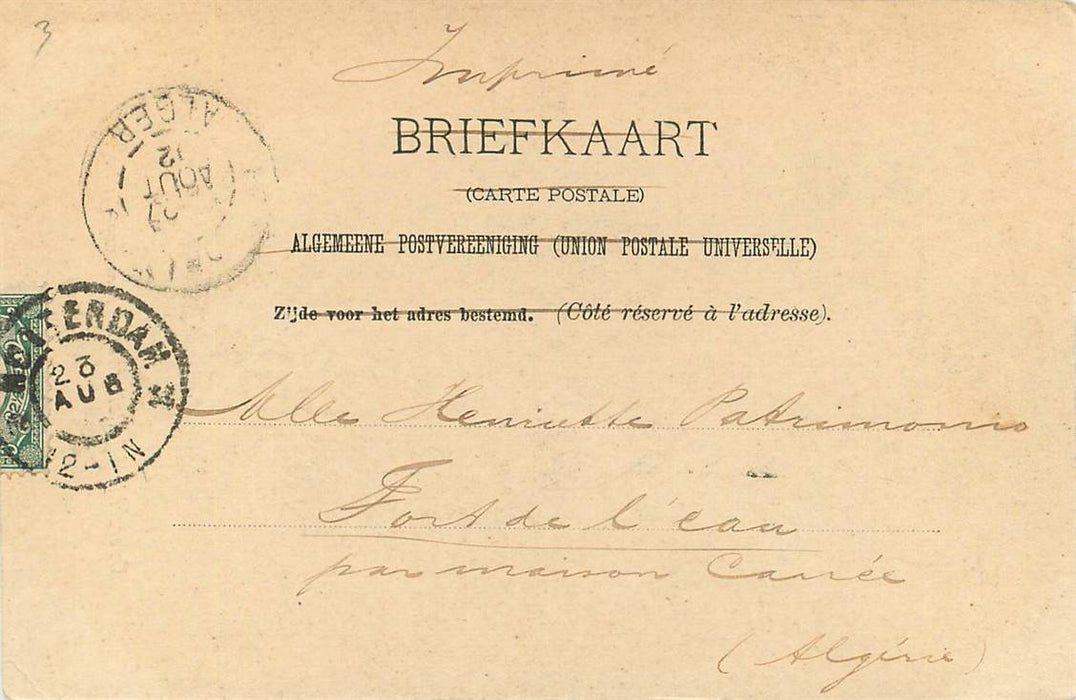 3
Imprimé
BRIEFKAART
(CARTE POSTALE)
ALGEMEENE POSTVEREENIGING (UNION POSTALE UNIVERSELLE)
Zijde voor het adres bestemd. (Côté réservé à l'adresse).
ALGER
12
AOUT
ROTTERDAM
23
AUG
12-1N
Mlle Henriette Patrimonio
Fort de l'eau
par maison Carrée
(Algérie)